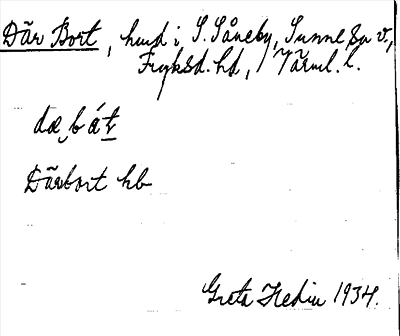 Där Bort, hmd i S. Såneby, Sunne sn v.,
Fryksd. hd, Värml. l.
dæ̨ b á t
Därbort hb
Greta Hedin 1934.